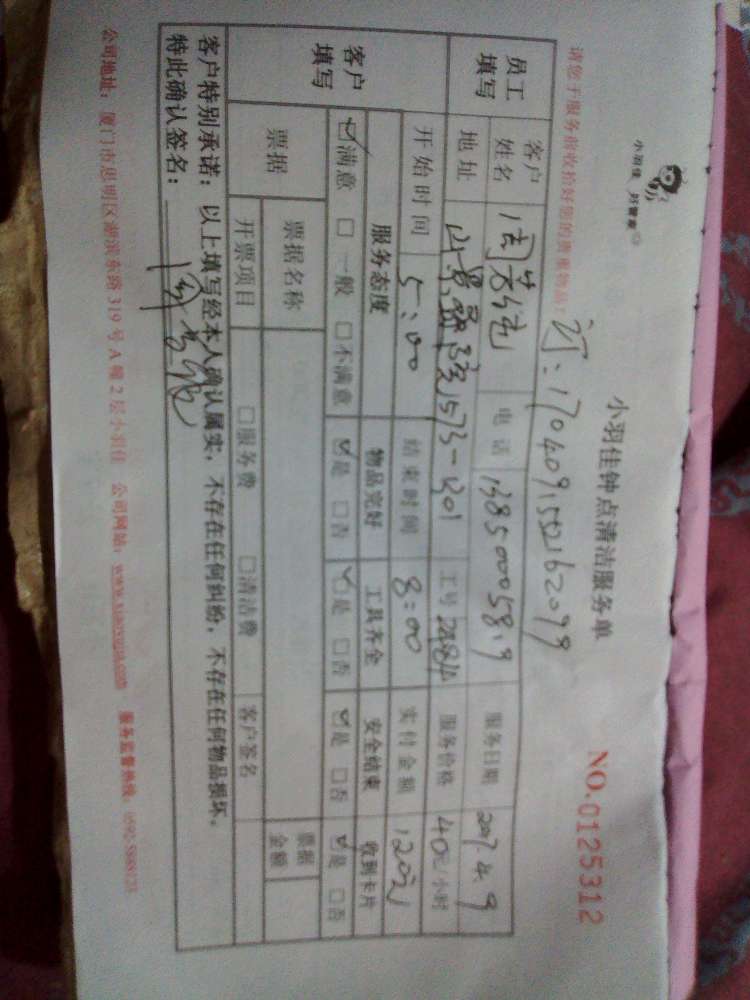 小羽佳 好管家
小羽佳钟点清洁服务单
NO.0125312
请您于服务前收拾好您的贵重物品!
订:1704091552162099
员工填写
客户姓名 电话 13850005819 服务日期 2017.4.9
地址 1573-1201 工号 服务价格 40元/小时
开始时间 5:00 结束时间 8:00 实付金额 120元
客户填写
服务态度 物品完好 工具齐全 安全结束 收到卡片
☑满意 □一般 □不满意 ☑是 □否 ☑是 □否 ☑是 □否 ☑是 □否
票据 票据名称 票据金额
开票项目 □服务费 □清洁费 客户签名
客户特别承诺:以上填写经本人确认属实,不存在任何纠纷,不存在任何物品损坏。
特此确认签名:
公司地址:厦门市思明区湖滨东路319号A幢2层小羽佳 公司网站:www.xiaoyujia.com 服务监督热线:0592-5888123